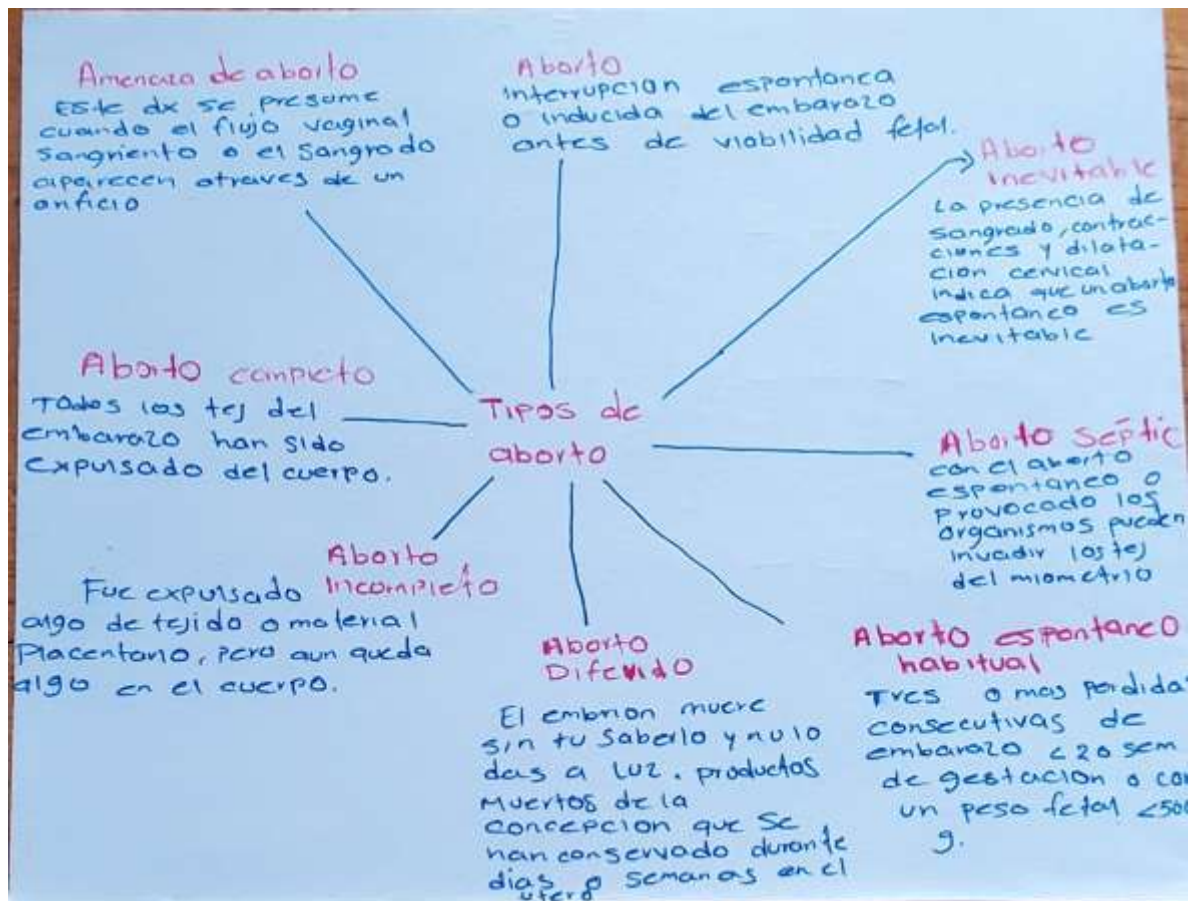 Amenaza de aborto
Este dx se presume
cuando el flujo vaginal
sangriento o el sangrado
aparecen atraves de un
orificio
Aborto
Interrupcion espontanea
o inducida del embarazo
antes de viabilidad fetal.
Aborto
inevitable
La presencia de
sangrado, contrac-
ciones y dilata-
cion cervical
indica que un aborto
espontaneo es
inevitable
Aborto completo
Todos los tej del
embarazo han sido
expulsado del cuerpo.
Tipos de
aborto
Aborto Séptic
con el aborto
espontaneo o
provocado los
organismos pueden
invadir los tej
del miometrio
Aborto
Incompleto
Fue expulsado
algo de tejido o material
Placentario, pero aun queda
algo en el cuerpo.
Aborto
Diferido
El embrion muere
sin tu saberlo y no lo
das a luz. productos
muertos de la
concepcion que se
han conservado durante
dias o semanas en el
utero
Aborto espontaneo
habitual
Tres o mas perdida
consecutivas de
embarazo <20 sem
de gestacion o con
un peso fetal <500
g.